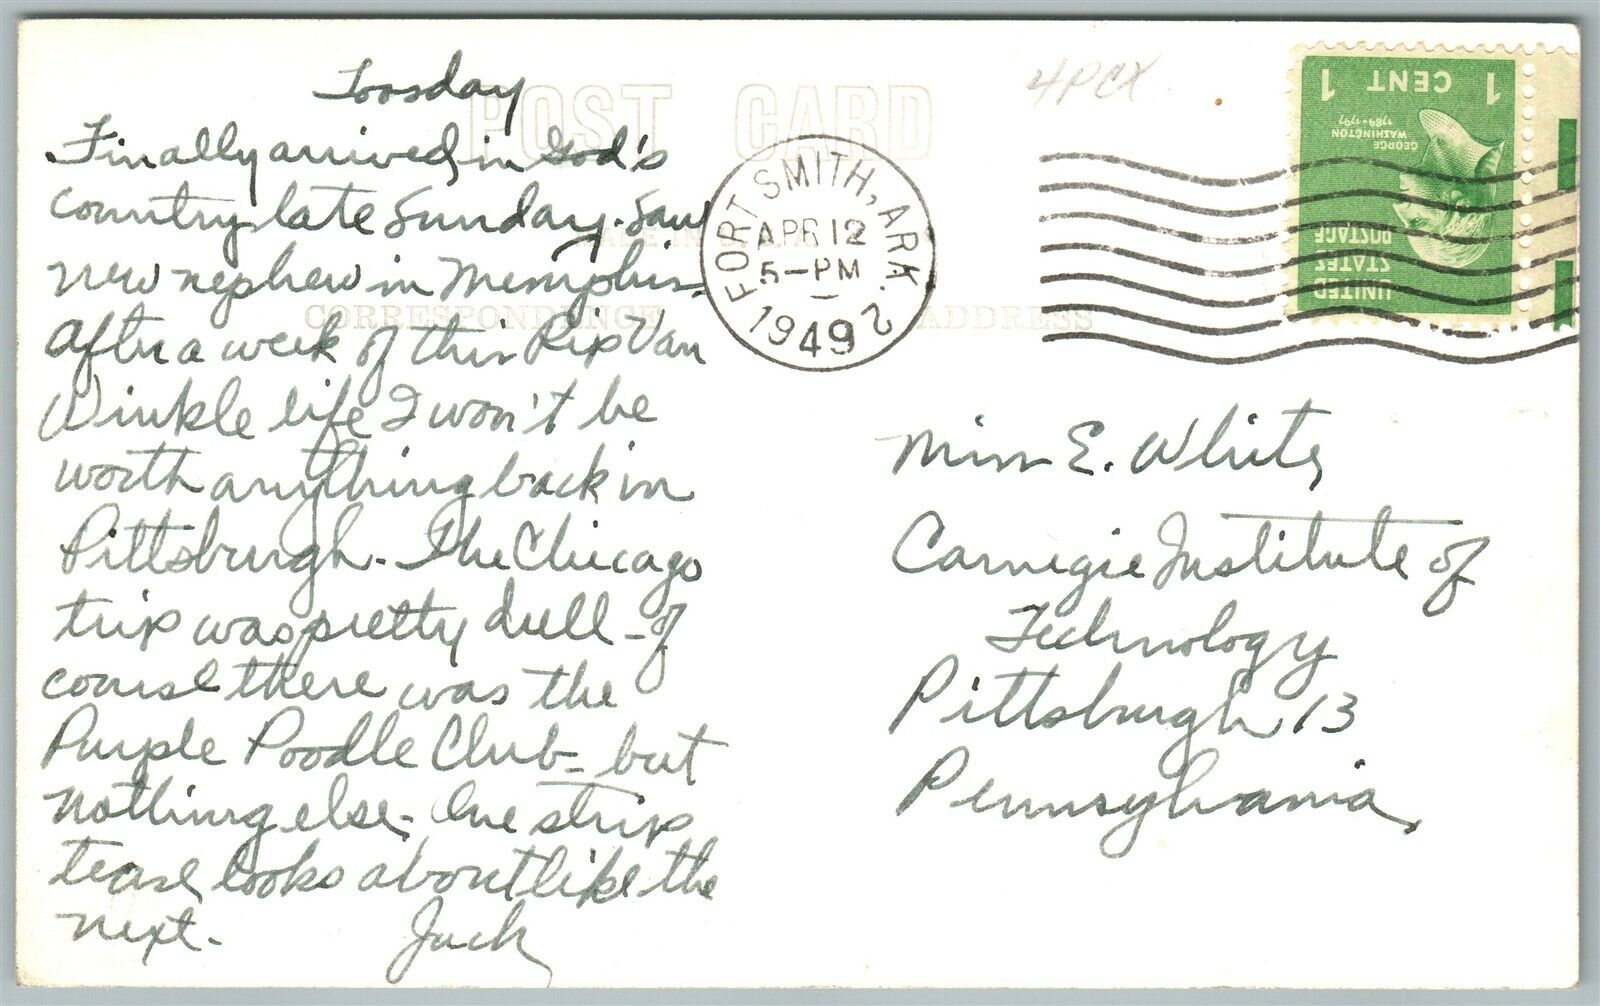 Toosday
Finally arrived in God's
country late Sunday. Saw
new nephew in Memphis.
After a week of this Rip Van
Winkle life I won't be
worth anything back in
Pittsburgh. The Chicago
trip was pretty dull - of
course there was the
Purple Poodle Club - but
nothing else. One strip
tease looks about like the
next.
Jack
POST CARD
MADE IN U.S.A.
CORRESPONDENCE
ADDRESS
4PCX
FORT SMITH, ARK. 2
APR 12
5-PM
1949
1 CENT 1
GEORGE
WASHINGTON
1789-1797
UNITED
STATES
POSTAGE
Miss E. White
Carnegie Institute of
Technology
Pittsburgh 13
Pennsylvania